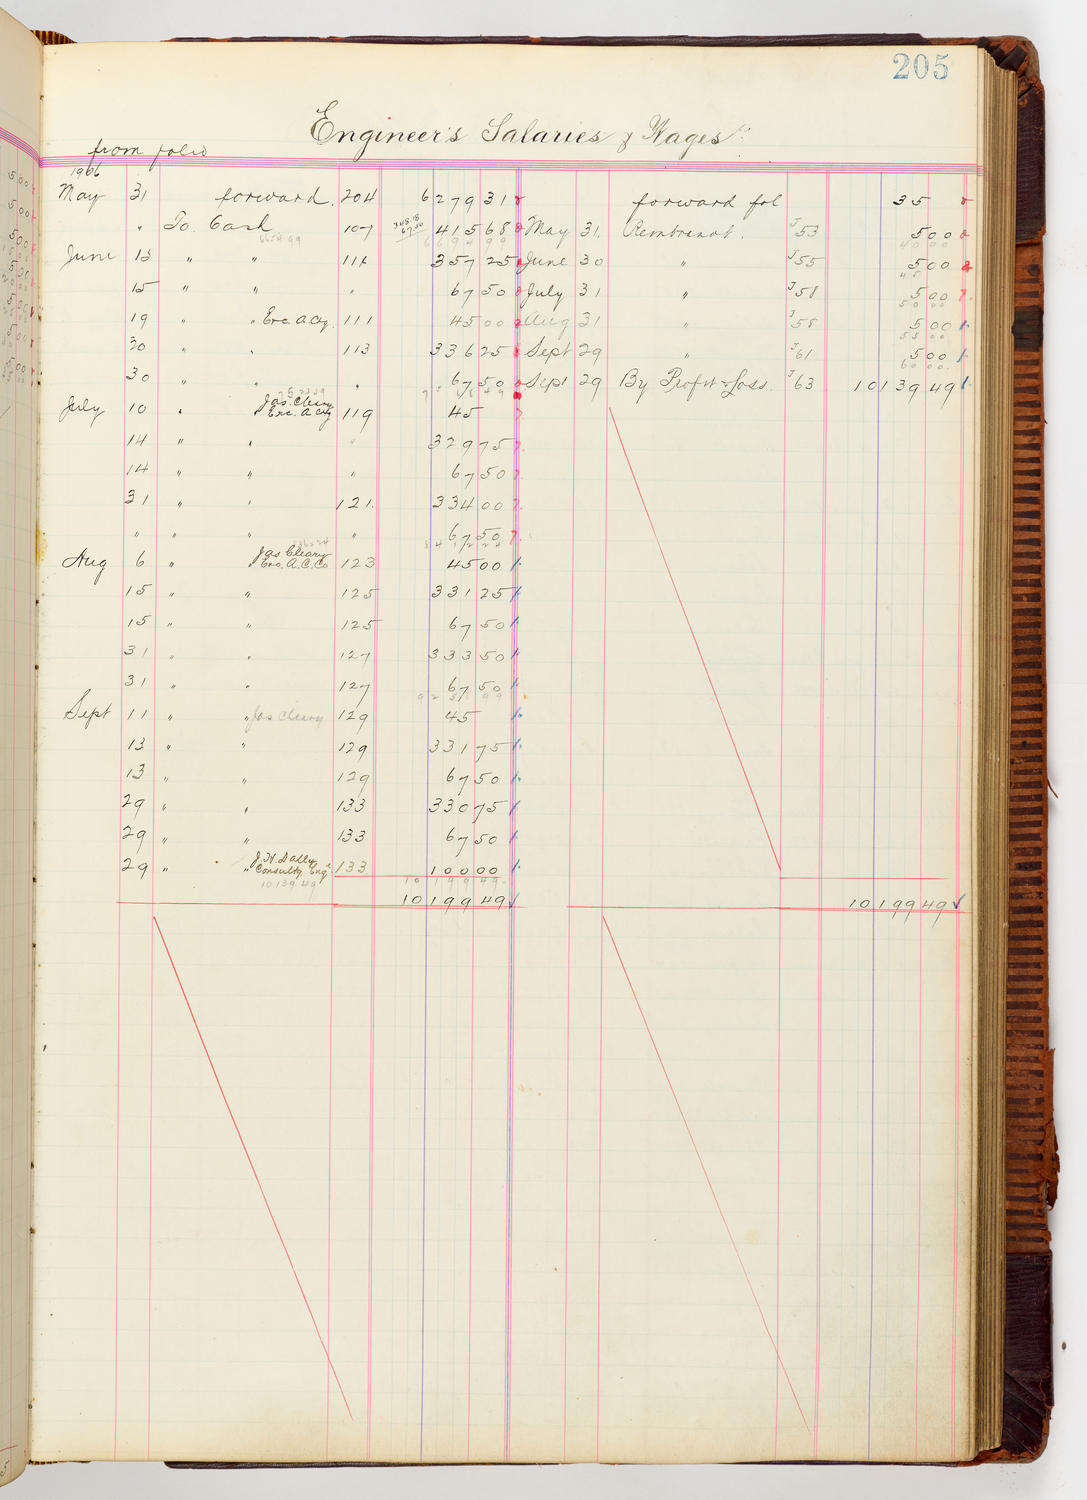 205
Engineer's Salaries & Wages
from folio
1906
May 31 forward. 204 6279 31 forward fol 35
" To Cash 107 348.18 67.50 415 68 May 31. Rembrandt. J53 5 00
6654 99
6694 99 40 00
June 15 " " 111 357 25 June 30 " J55 5 00
45
15 " " " 67 50 July 31 " J58 5 00
50 00
19 " " Exc. A Cy. 111 45 00 Aug 31 " J58 5 00
55 00
30 " " 113 336 25 Sept 29 " J61 5 00
60 00.
30 " " " 67 50 Sept 29 By Profit & Loss. J63 10139 49
July 10 " " Jas. Cleary Exc. A Cy 119 45
14 " " " 329 75
14 " " " 67 50
31 " " 121. 334 00
" " " " 67 50
Aug 6 " " Jas Cleary Exc. A. C. Co 123 45 00
15 " " 125 331 25
15 " " 125 67 50
31 " " 127 333 50
31 " " 127 67 50
92 51 99
Sept 11 " " Jas Cleary 129 45
13 " " 129 331 75
13 " " 129 67 50
29 " " 133 330 75
29 " " 133 67 50
29 " " J. H. Dally Consultg Engr 133. 100 00
10139 49 10 199 49.
10199 49 10199 49